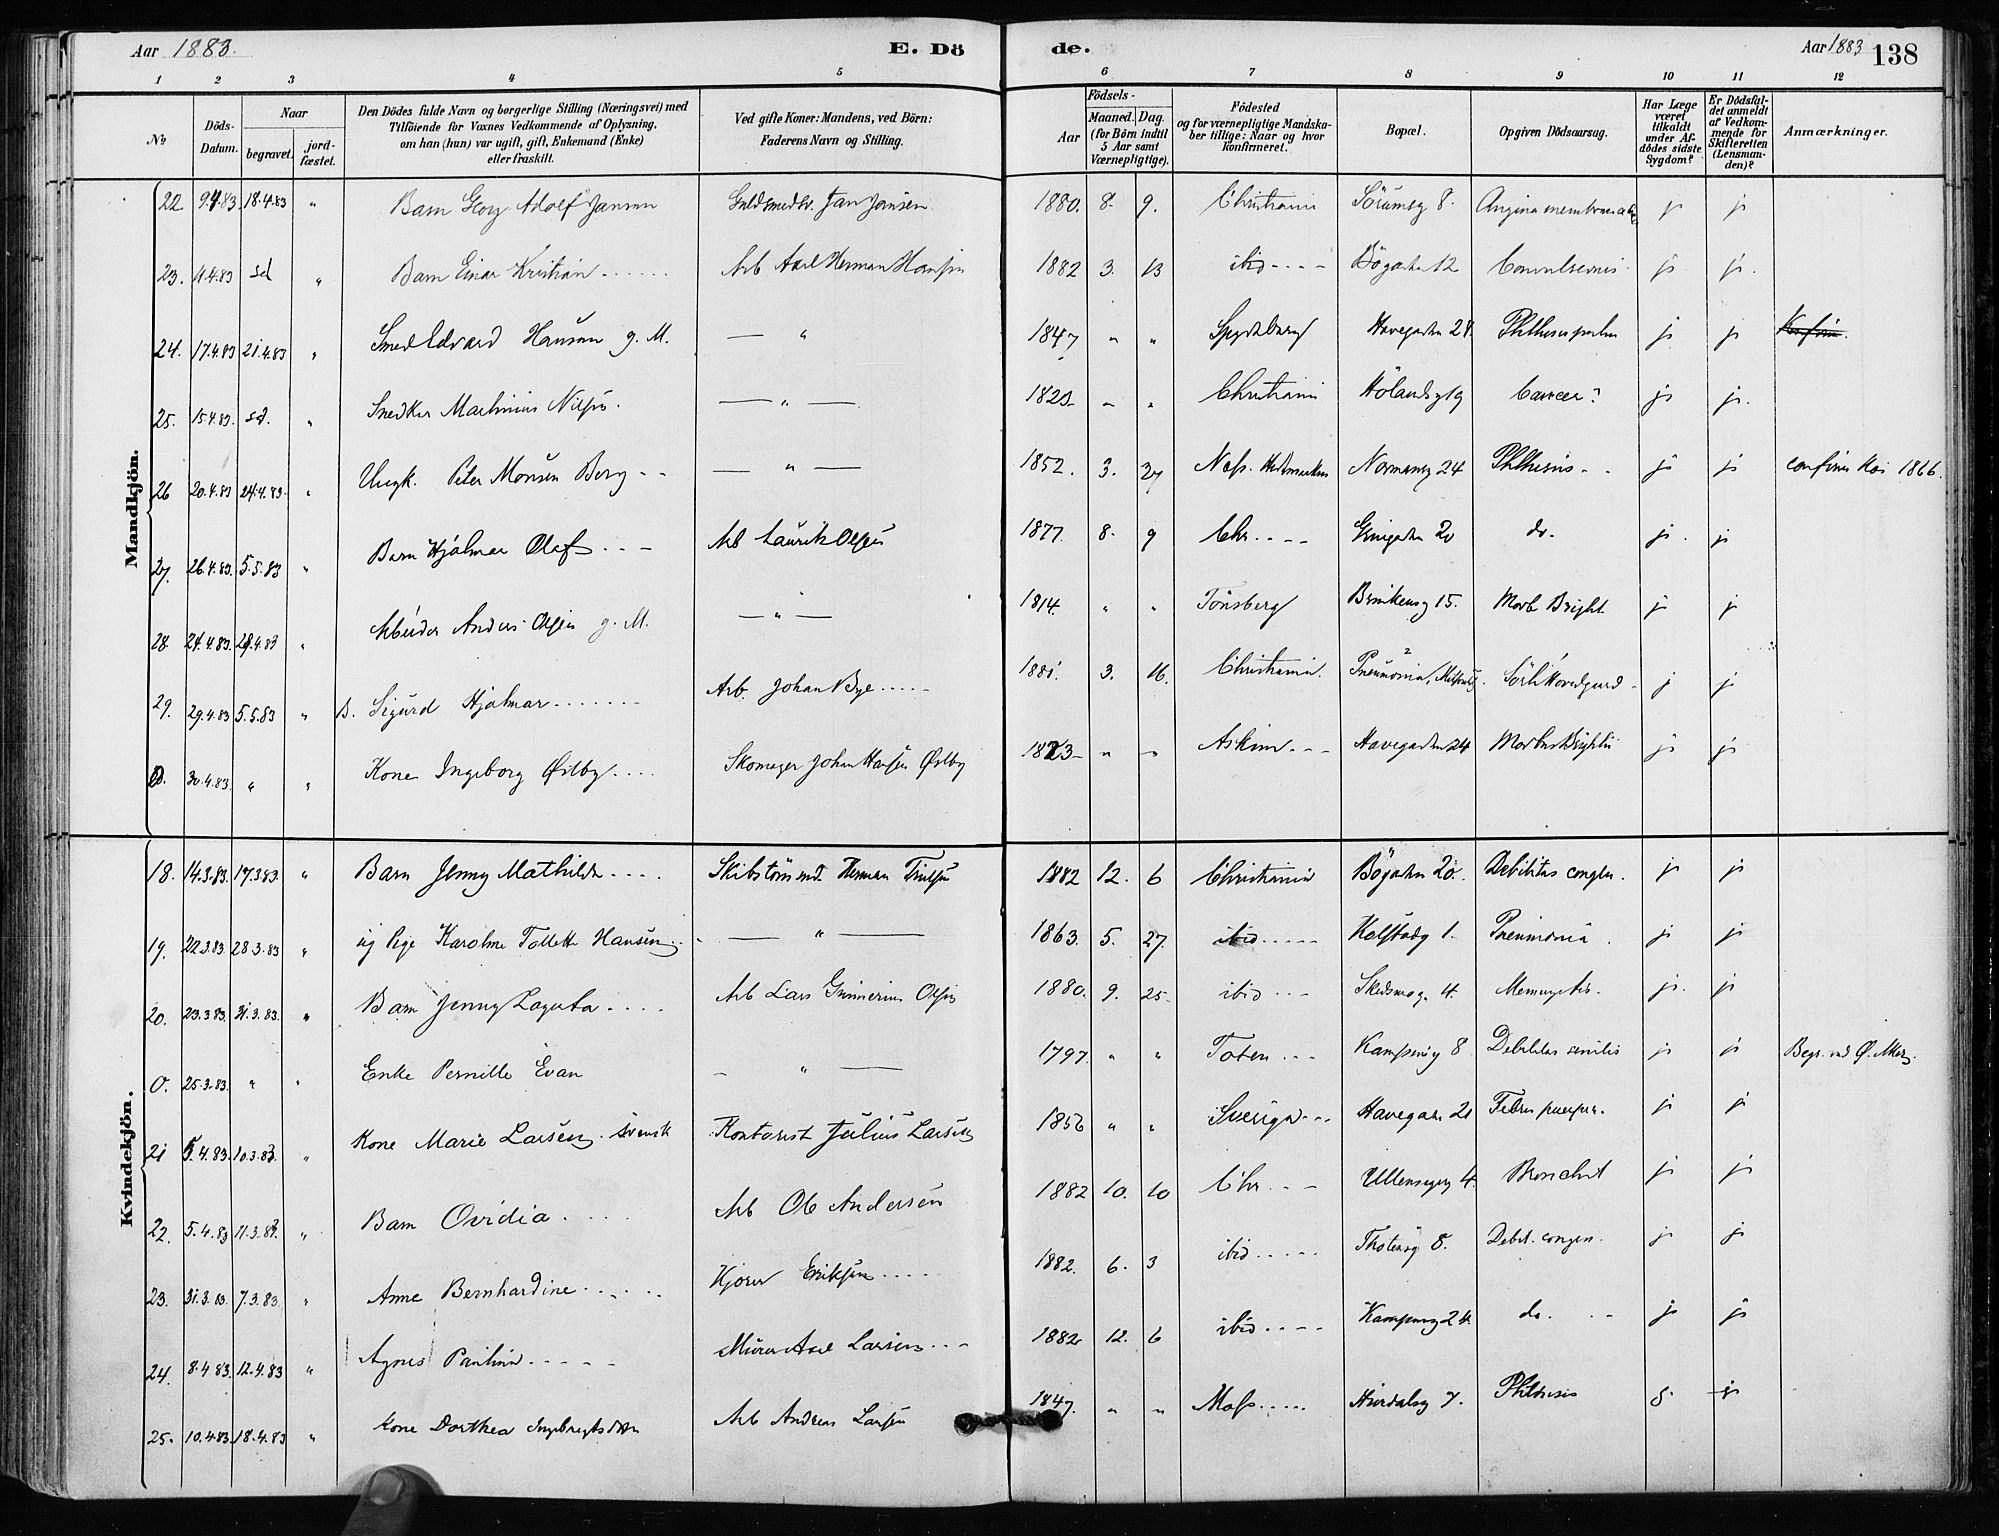 Aar 1883.
E. Dö
de.
Aar 1883 138
1 2 3 4 5 6 7 8 9 10 11 12
№
Döds-Datum.
Naar
begravet.
jord-fæstet.
Den Dödes fulde Navn og borgerlige Stilling (Næringsvei) med
Tilföiende for Voxnes Vedkommende af Oplysning,
om han (hun) var ugift, gift, Enkemand (Enke)
eller fraskilt.
Ved gifte Koner: Mandens, ved Börn:
Faderens Navn og Stilling.
Födsels-
Aar
Maaned. Dag.
(for Börn indtil
5 Aar samt
Værnepligtige).
Födested
og for værnepligtige Mandska-
ber tillige: Naar og hvor
konfirmeret.
Bopæl.
Opgiven Dödsaarsag.
Har Læge
været
tilkaldt
under Af-
dödes sidste
Sygdom?
Er Dödsfal-
det anmeldt
af Vedkom-
mende for
Skifteretten
(Lensman-
den)?
Anmærkninger.
Mandkjön.
22 9.4.83. 18.4.83 " Barn Georg Adolf Jansen Guldsmedsv. Jan Jansen 1880. 8. 9. Christiania Sörumsg 8. Angina membranacea j j
23. 11.4.83 sd " Barn Einar Kristian Arb Axel Herman Hansen 1882 3. 13 ibid Bögaden 12 Convulsiones j j.
24. 17.4.83 21.4.83 " Smed Edvard Hansen g. M. — " 1847 " " Spydeberg Havegaden 24. Phthisis pulm j j
25. 15.4.83. sd. " Snedker Martinius Nilsen. — " — " " Christiania Hölandsg 19 Cancer? j j.
26 20.4.83 24.4.83. " Ungk. Peter Monsen Berg — " — 1852. 3. 27 Næs. Hedemarken Normansg 24 Phthisis j j confirm 1866.
27. 26.4.83. 5.5.83 " Barn Hjalmar Olaf Arb Laurits Olsen 1877. 8. 9 Chr. Grünigaden 20 do. j. j
28. 24.4.83. 29.4.83 " Arbeider Anders Olsen g. M. — " — 1814. " " Tönsberg 15. Morb Bright j j
29. 29.4.83 5.5.83 " B. Sigurd Hjalmar Arb. Johan Bye 1881. 3. 16. Christiania. Pneumonia, Sörli Hovedgaard j j
0. 30.4.83. " " Kone Ingeborg Østby Skomager Johan Hansen Østby 1823 " " Askim Havegaden 24 Morbus Brightii j j
Kvindekjön.
18. 14.3.83. 17.3.83. " Barn Jenny Mathilde Skibstömmd. Herman 1882 12. 6 Christiania Bögaden 20. Debilitas congen. j j
19. 22.3.83. 28.3.83 " ug Pige Karoline Tollette Hansen — " — 1863. 5. 27. ibid Kolstadg 1. Pneumonia. j j
20. 23.3.83. 31.3.83. " Barn Jenny Lagerta Arb Lars Gunnerius Olsen 1880. 9. 25. ibid Skedsmog. 4. Meningitis. j. j
0. 25.3.83. " " Enke Pernille Evan " — 1797. " " Toten Kampenng 8 Debilitas senilis j j Begr. ved Ø. Aker
21 5.4.83. 10.3.83. " Kone Marie Larsen. svensk Kontorist Julius Larsen 1856 " " Sverige Havegaden 20 Febris puerper. j j
22. 5.4.83 11.3.83. " Barn Ovidia Arb Ole Andersen 1882 10. 10 Chr. Ullensagerg 4. Bronchit j j
23. 31.3.83. 7.3.83. " Anne Bernhardine Kjörer Eriksen 1882. 6. 3 ibid 8. Debil. congen. j j
24. 8.4.83. 12.4.83 " Agnes Pauline Murer Axel Larsen 1882 12. 6 ibid Kampenng 24. do. j j
25. 10.4.83. 18.4.83 " Kone Dorthea Ingebregtsdtter Arb Andreas Larsen 1847. " " Moss Hurdalsg 7. Phthisis j j